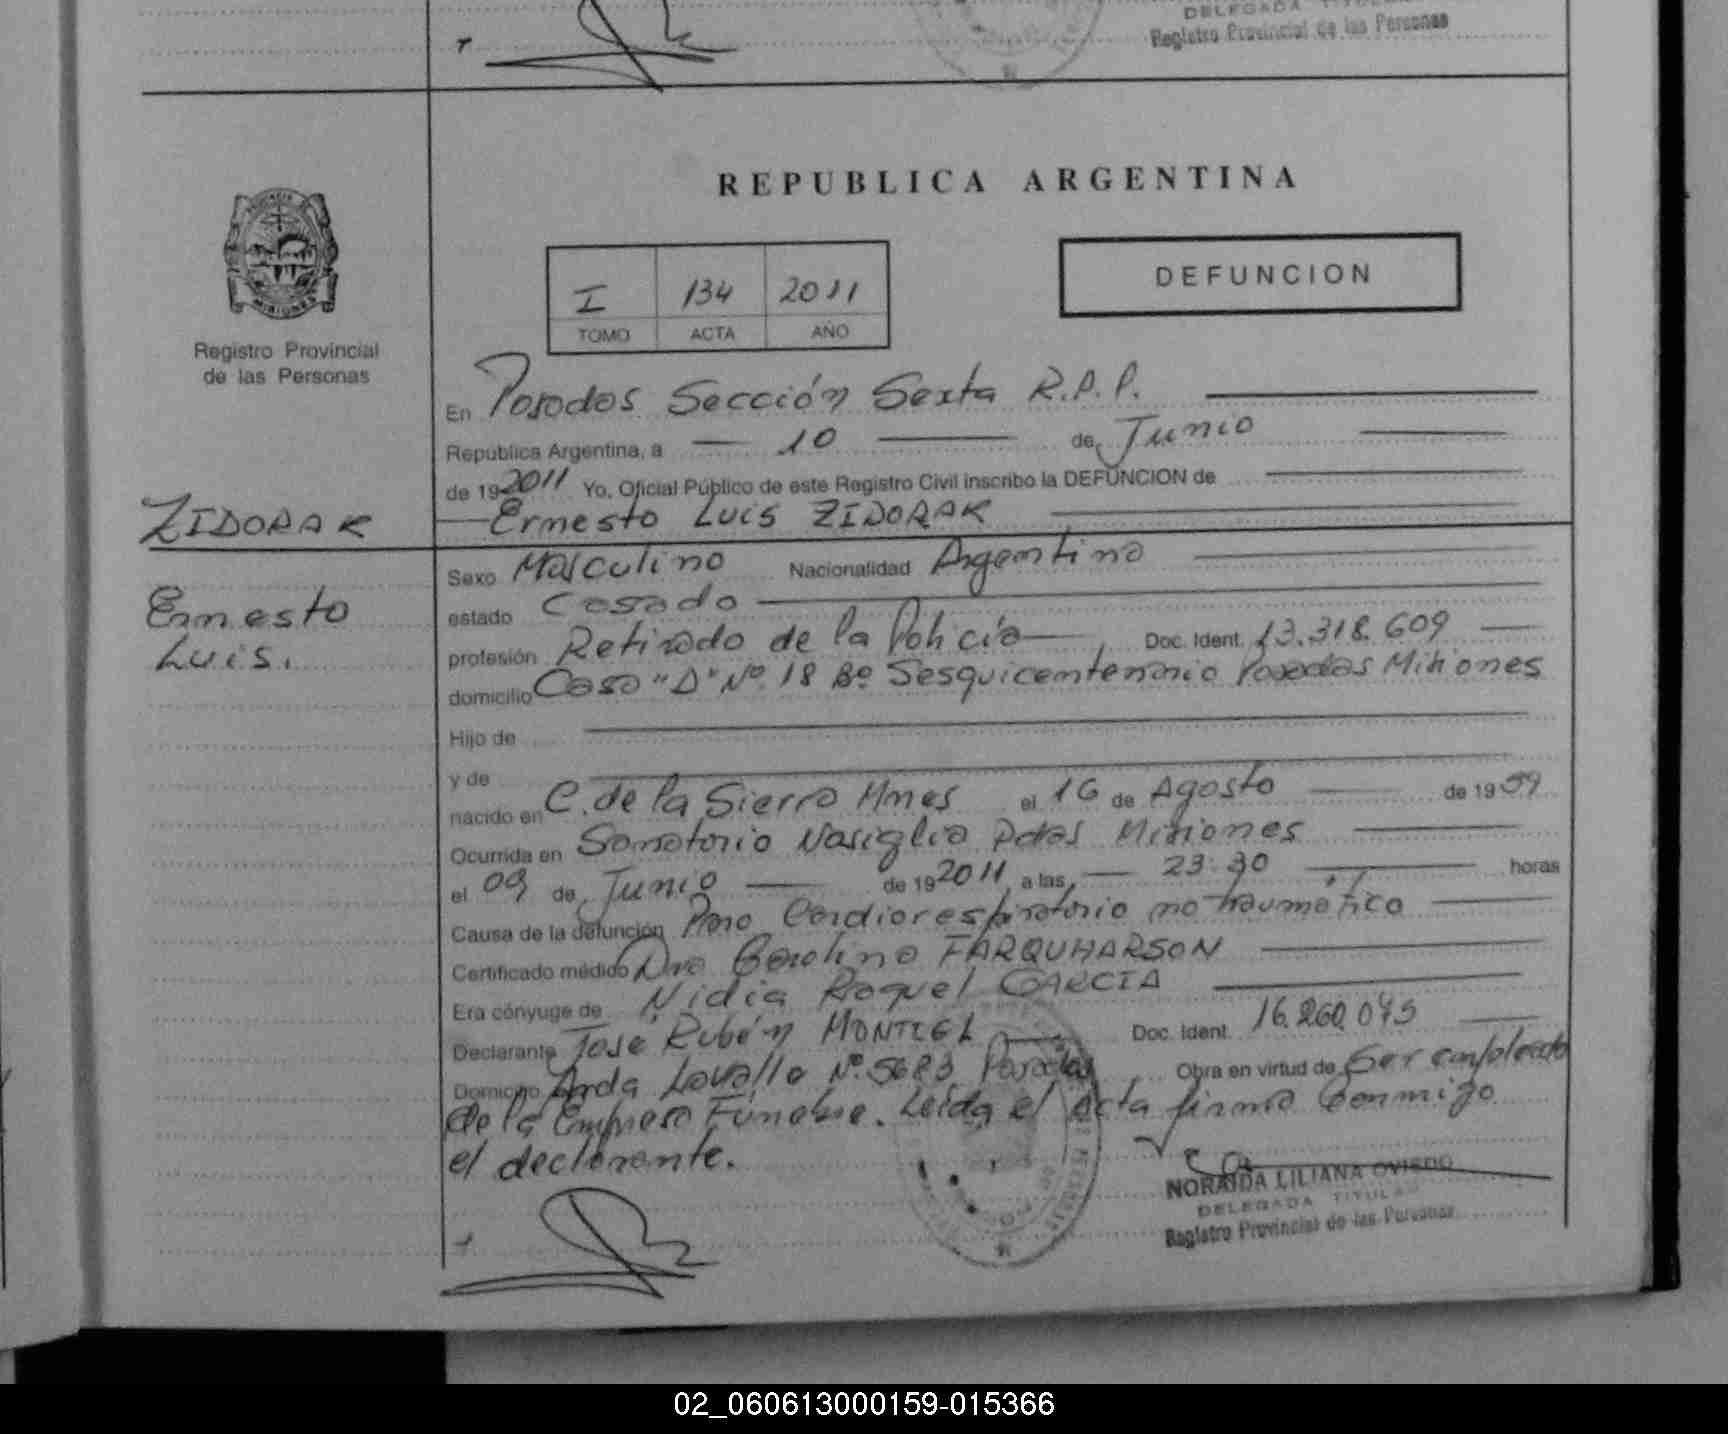 DELEGADA TITULAR
Registro Provincial de las Personas
REPUBLICA ARGENTINA
I 134 2011
TOMO ACTA AÑO
DEFUNCION
MISIONES
Registro Provincial
de las Personas
En Posadas Sección Sexta R.P.P.
Republica Argentina, a 10 de Junio
de 19 2011 Yo, Oficial Público de este Registro Civil inscribo la DEFUNCION de
Ernesto Luis ZIDORAK
ZIDORAK
Ernesto
Luis.
Sexo Masculino Nacionalidad Argentina
estado Casado
profesión Retirado de la Policía Doc. Ident. 13.318.609
domicilio Casa "D" Nº 18 Bº Sesquicentenario Posadas Misiones
Hijo de
y de
nacido en C. de la Sierra Mnes el 16 de Agosto de 1959
Ocurrida en Sanatorio Nosiglia Pdas Misiones
el 09 de Junio de 19 2011 a las 23:30 horas
Causa de la defunción Paro Cardiorespiratorio no traumático
Certificado médico Dra Carolina FARQUHARSON
Era cónyuge de Nidia Raquel GARCIA
Declarante José Rubén MONTIEL Doc. Ident. 16.260.045
Domicilio Avda Lavalle Nº 5683 Posadas Obra en virtud de Ser empleado
de la Empresa Fúnebre. Leída el Acta firma Conmigo
el declarante.
NORAIDA LILIANA OVIEDO
DELEGADA TITULAR
Registro Provincial de las Personas
02_060613000159-015366